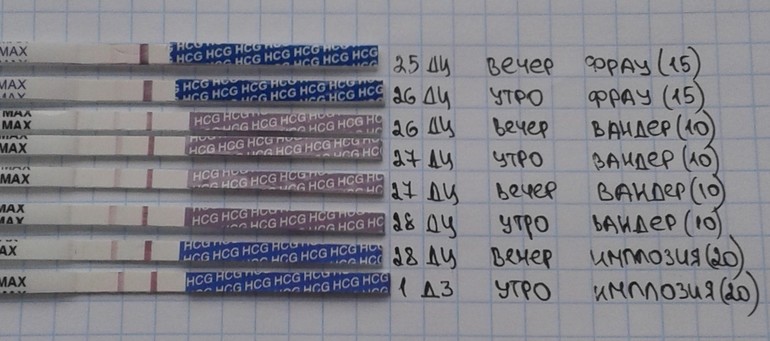 MAX HCG HCG HCG HCG HCG HCG 25 ДЦ ВЕЧЕР ФРАУ (15)
MAX HCG HCG HCG HCG HCG HCG 26 ДЦ УТРО ФРАУ (15)
MAX HCG HCG HCG HCG HCG HC 26 ДЦ ВЕЧЕР ВАНДЕР (10)
MAX HCG HCG HCG HCG HCG HC 27 ДЦ УТРО ВАНДЕР (10)
MAX HCG HCG HCG HCG HCG HC 27 ДЦ ВЕЧЕР ВАНДЕР (10)
MAX HCG HCG HCG HCG HCG HCG 28 ДЦ УТРО ВАНДЕР (10)
AX HCG HCG HCG HCG HCG HC 28 ДЦ ВЕЧЕР ИМПЛОЗИЯ (20)
MAX HCG HCG HCG HCG HCG HCG 1 ДЗ УТРО ИМПЛОЗИЯ (20)